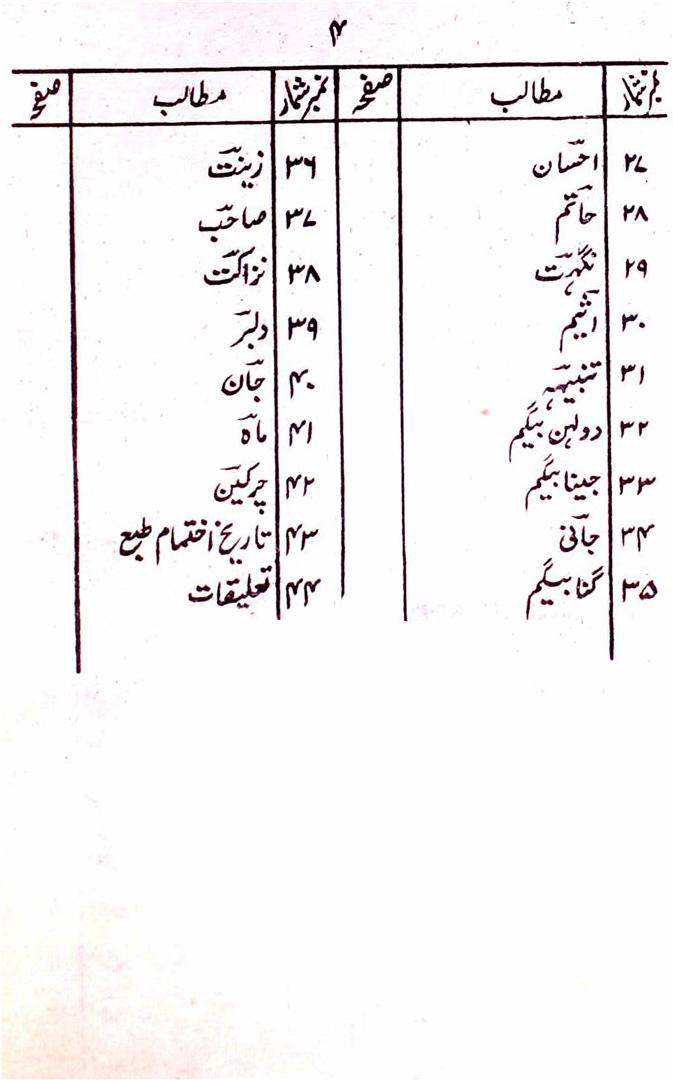 ۴
نمبر شمار مطالب صفحہ نمبر شمار مطالب صفحہ
۲۷ احسان ۳۶ زینت
۲۸ حاتم ۳۷ صاحب
۲۹ نگہت ۳۸ نزاکت
۳۰ اثیم ۳۹ دلبر
۳۱ تنبیہہ ۴۰ جان
۳۲ دولہن بیگم ۴۱ ماہ
۳۳ جینا بیگم ۴۲ چرکین
۳۴ جانی ۴۳ تاریخ اختمام طبع
۳۵ گنا بیگم ۴۴ تعلیقات